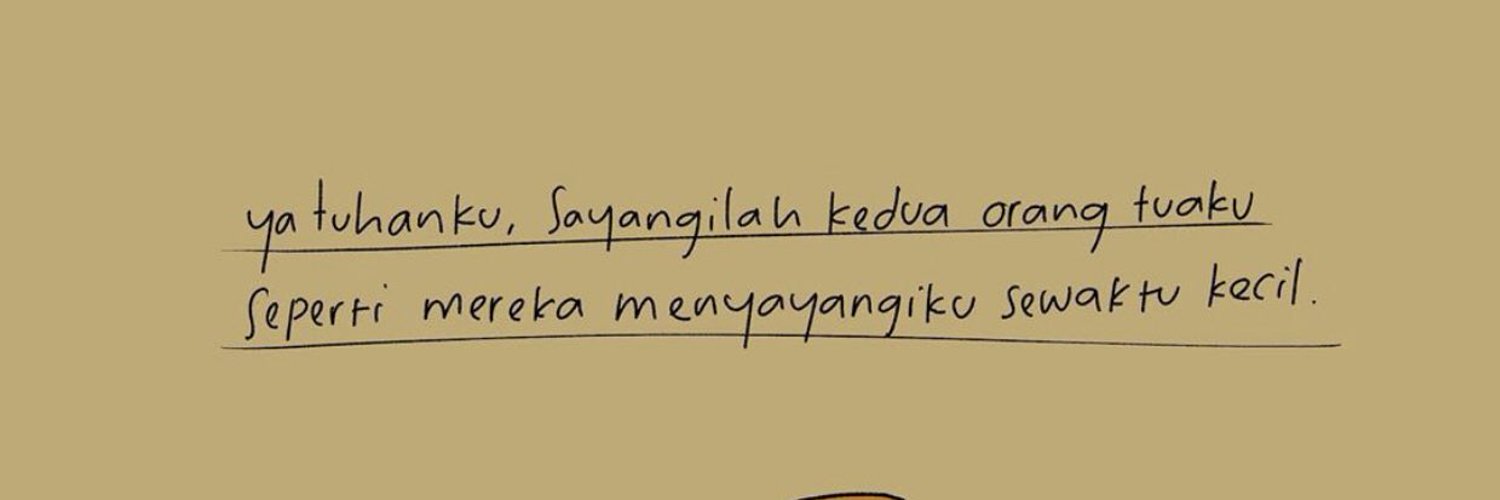 ya tuhanku, sayangilah kedua orang tuaku
seperti mereka menyayangiku sewaktu kecil.